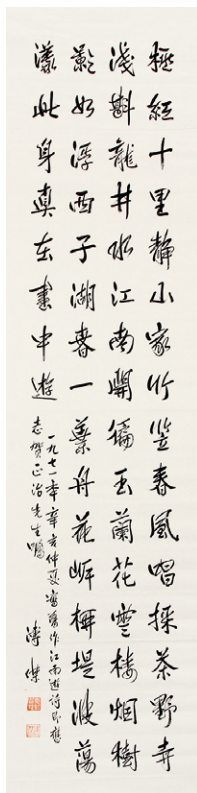 紅十里靜山家竹笠春風唱採茶野寺
淺斟龍井水江南開徧玉蘭花雲樓烟樹
影如浮西子湖春一葉舟花嶼柳堤波蕩
漾此身真在畫中遊
一九七一年辛亥仲夏舊作江南遊詩以應
志賀正治先生囑
溥傑